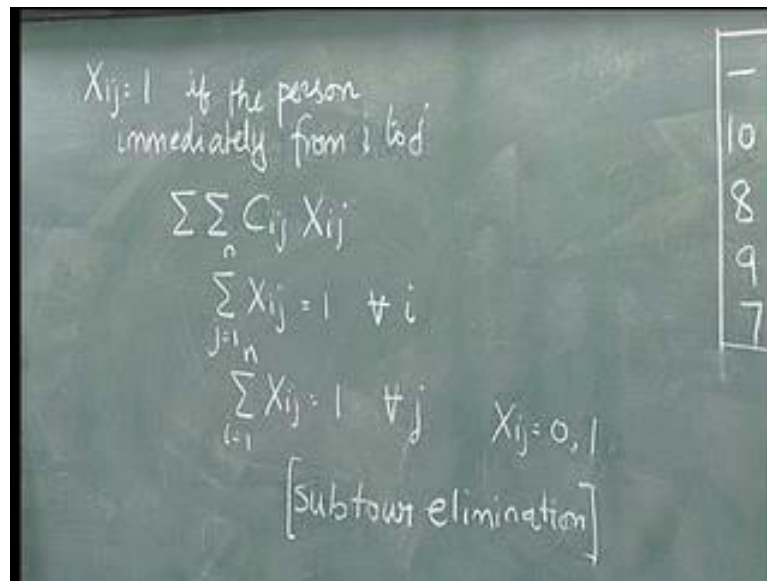 Xij = 1 if the person
immediately from i to j
∑ ∑ Cij Xij
n
∑ Xij = 1 ∀ i
j=1
n
∑ Xij = 1 ∀ j
i=1
Xij = 0, 1
[subtour elimination]
—
10
8
9
7